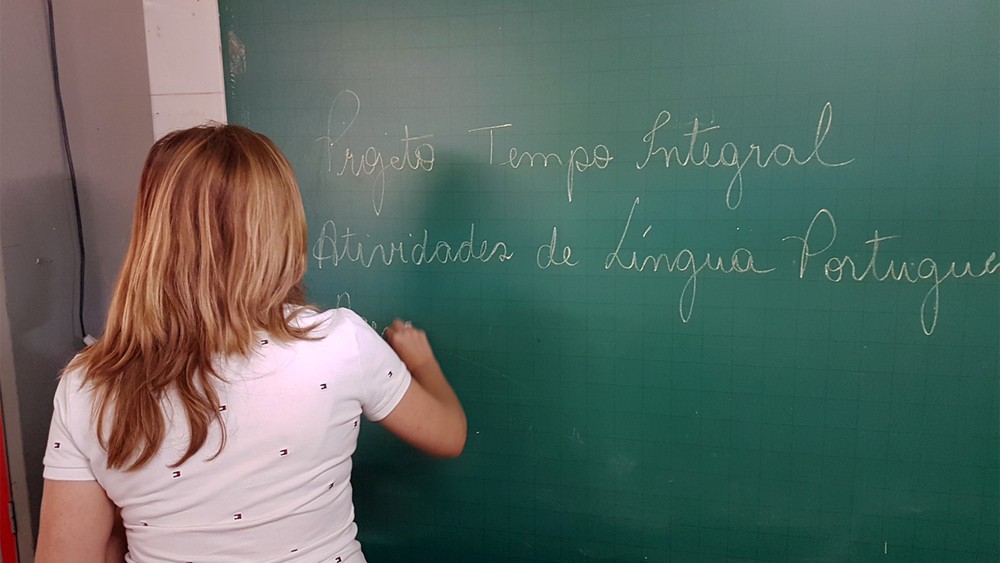 Projeto Tempo Integral
Atividades de Língua Portugue